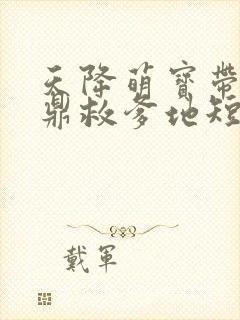 天降萌寶帶
鼎救爹地短
戴軍